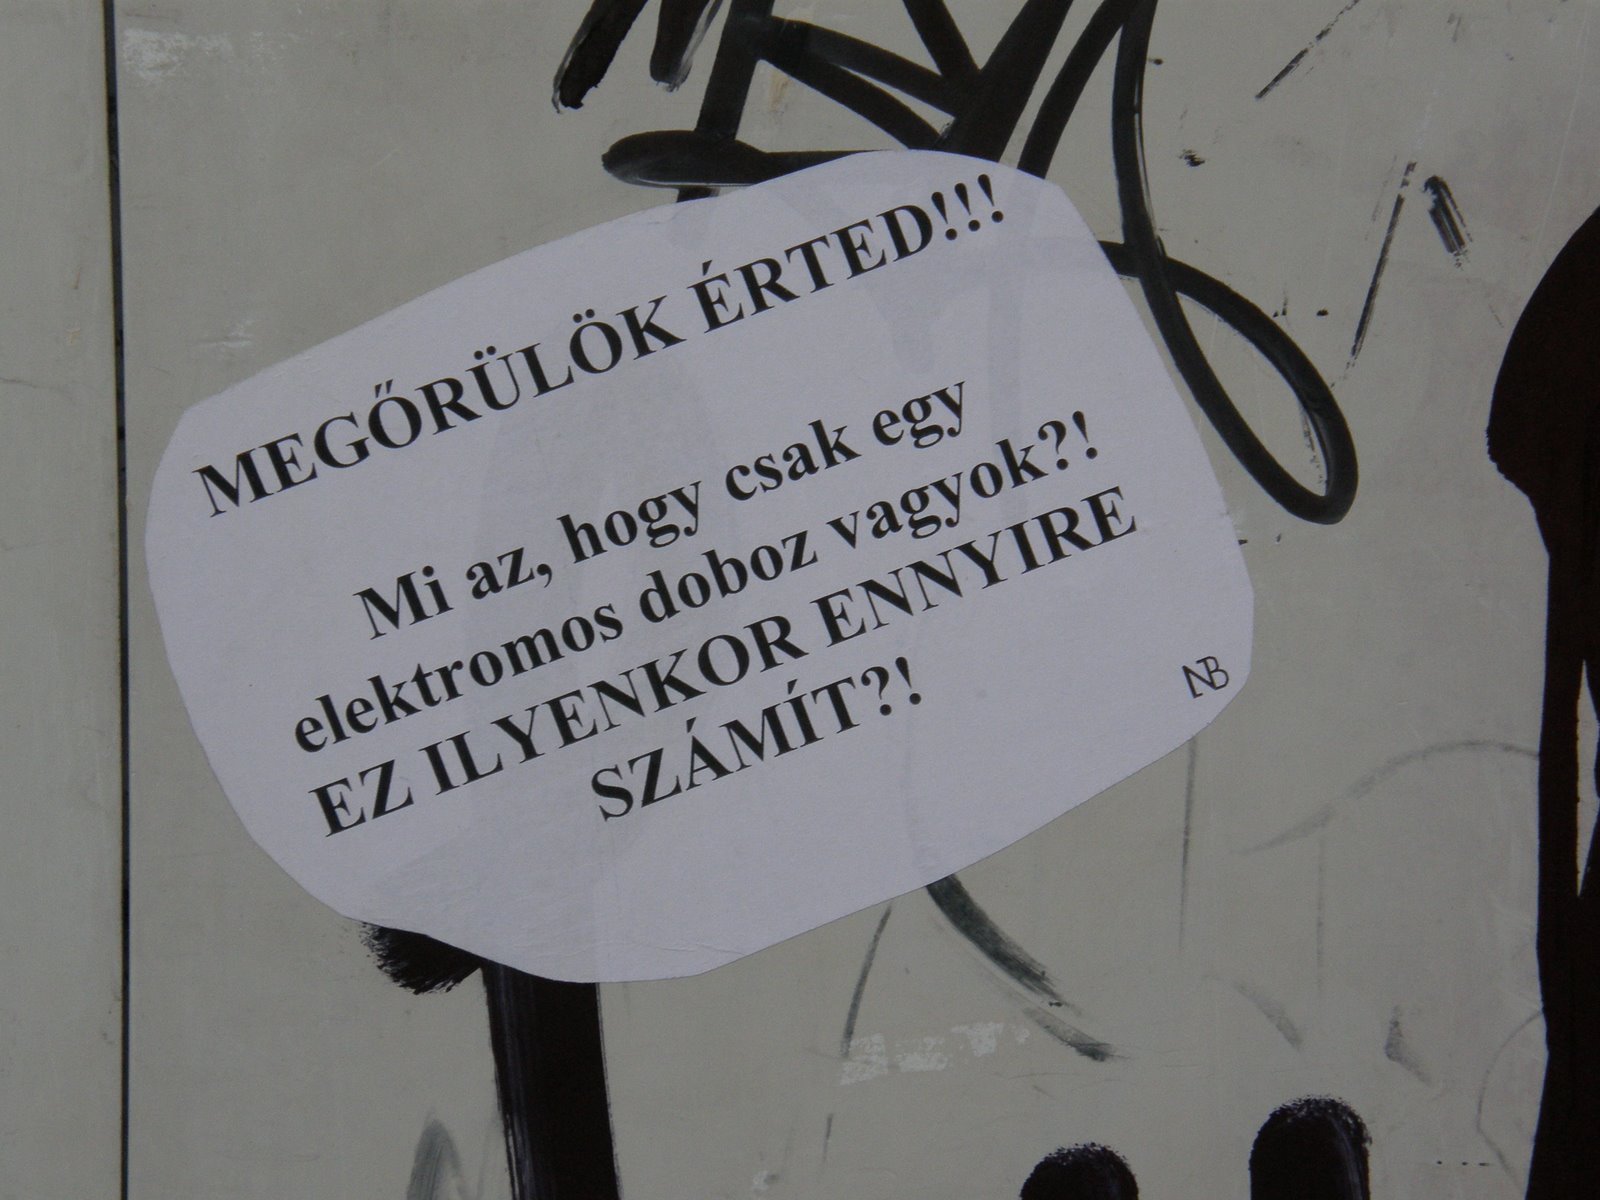 MEGŐRÜLÖK ÉRTED!!!
Mi az, hogy csak egy
elektromos doboz vagyok?!
EZ ILYENKOR ENNYIRE
SZÁMÍT?!
NB